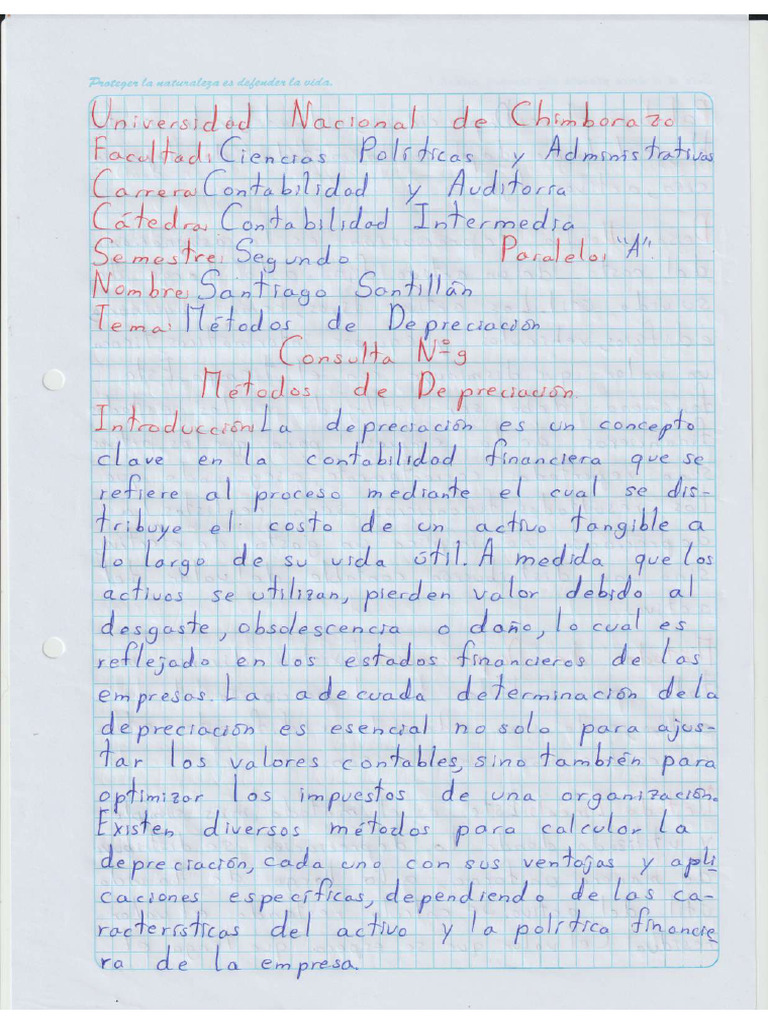 Proteger la naturaleza es defender la vida.
Universidad Nacional de Chimborazo
Facultad: Ciencias Políticas y Administrativas
Carrera: Contabilidad y Auditoría
Cátedra: Contabilidad Intermedia
Semestre: Segundo Paralelo: "A".
Nombre: Santiago Santillán
Tema: Métodos de Depreciación
Consulta Nº9
Métodos de Depreciación.
Introducción: La depreciación es un concepto
clave en la contabilidad financiera que se
refiere al proceso mediante el cual se dis-
tribuye el costo de un activo tangible a
lo largo de su vida útil. A medida que los
activos se utilizan, pierden valor debido al
desgaste, obsolescencia o daño, lo cual es
reflejado en los estados financieros de las
empresas. La adecuada determinación de la
depreciación es esencial no solo para ajus-
tar los valores contables, sino también para
optimizar los impuestos de una organización.
Existen diversos métodos para calcular la
depreciación, cada uno con sus ventajas y apli
caciones específicas, dependiendo de las ca-
racterísticas del activo y la política financie
ra de la empresa.